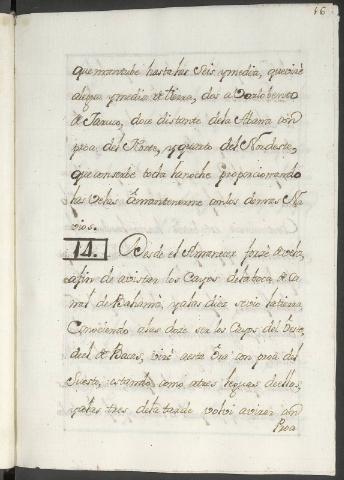 16
que mantube hasta las seis y media, que viré
a legua y media de tierra, dos a Varlobento
de Jaruco, doce distante dela Abana con
proa del Norte, y quarto del Nordeste,
que conserbe toda la noche proporcionando
las velas à mantenerme con los demas Na
vios.
14. Desde el Amanecer forzé de vela,
a fin de avistar los Cayos dela boca de Ca
nal de Bahama, y alas diez se vio la tierra
Conociendo alas doze ser los Cayos del Oeste,
del de Bacas, viré aesta Ora con proa del
Sueste, estando como a tres leguas de ellos,
y alas tres dela tarde volvi a virar con
Proa